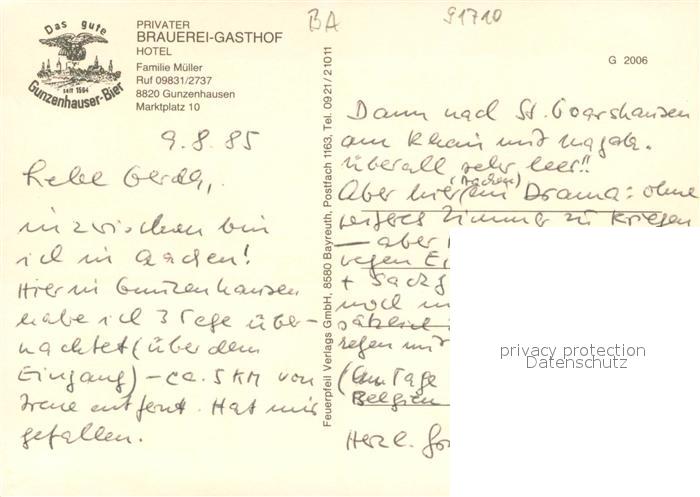 Das gute
seit 1564
Gunzenhauser-Bier
PRIVATER
BRAUEREI-GASTHOF
HOTEL
Familie Müller
Ruf 09831/2737
8820 Gunzenhausen
Marktplatz 10
BA
91710
G 2006
Feuerpfeil Verlags GmbH, 8580 Bayreuth, Postfach 1163, Tel. 0921/21011
9.8.85
Liebe Gerda,
inzwischen bin
ich in Aachen!
Hier in Gunzenhausen
habe ich 3 Tage über-
nachtet (über dem
Eingang) – ca. 5 KM von
Irene entfernt. Hat mir
gefallen.
Dann nach St. Goarshausen
am Rhein mit
überall sehr leer!!
(Aachen)
Aber hier ein Drama: ohne
Zimmer zu kriegen
— aber
wegen
+
noch
regen mit
(Am Tage
Belgien
Herzl.
privacy protection
Datenschutz